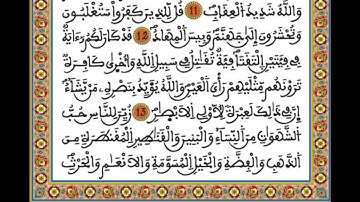 وَاللَّهُ شَدِيدُ الْعِقَابِ 11 قُل لِّلذِينَ كَفَرُواْ سَتُغْلَبُونَ
وَتُحْشَرُونَ إِلَىٰ جَهَنَّمَ وَبِيسَ الْمِهَادُ 12 قَدْ كَانَ لَكُمُ ءَايَةٌ
فِي فِئَتَيْنِ اِلْتَقَتَا فِئَةٌ تُقَٰتِلُ فِي سَبِيلِ اِللَّهِ وَأُخْرَىٰ كَافِرَةٌ
تَرَوْنَهُم مِّثْلَيْهِمْ رَأْيَ اَلْعَيْنِ وَاللَّهُ يُؤَيِّدُ بِنَصْرِهِ مَنْ يَّشَآءُ
إِنَّ فِي ذَٰلِكَ لَعِبْرَةً لِّأُوْلِي اِلَابْصَٰرِ 13 زُيِّنَ لِلنَّاسِ حُبُّ
اُلشَّهَوَٰتِ مِنَ اَلنِّسَآءِ وَالْبَنِينَ وَالْقَنَٰطِيرِ اِلْمُقَنطَرَةِ مِنَ
اَلذَّهَبِ وَالْفِضَّةِ وَالْخَيْلِ اِلْمُسَوَّمَةِ وَالَانْعَٰمِ وَالْحَرْثِ